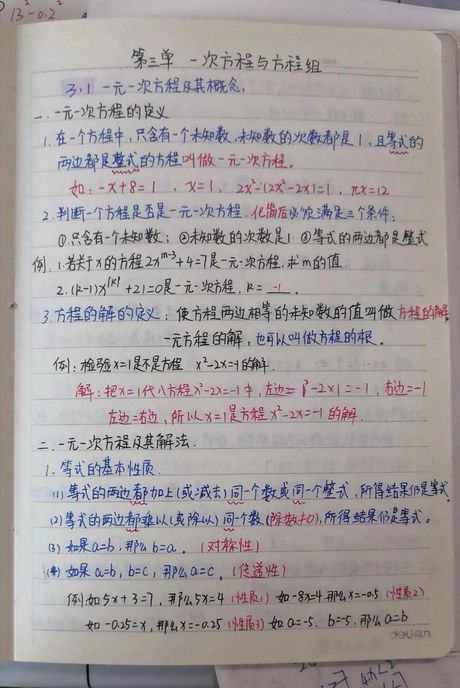 13²-0.2²
第三单 一次方程与方程组
3.1 一元一次方程及其概念.
一.一元一次方程的定义
1.在一个方程中,只含有一个未知数,未知数的次数都是1,且等式的
两边都是整式的方程叫做一元一次方程。
如:-x+8=1、x=1、2x²-(2x²-2x)=1、πx=12
2.判断一个方程是否是一元一次方程,化简后必须满足三个条件:
①只含有一个未知数;②未知数的次数是1 ③等式的两边都是整式
例.1.若关于x的方程2x^{m-3}+4=7是一元一次方程,求m的值
2.(k-1)x^{|k|}+21=0是一元一次方程,k=-1.
3.方程的解的定义:使方程两边相等的未知数的值叫做方程的解
一元方程的解,也可以叫做方程的根。
例:检验x=1是不是方程 x²-2x=-1的解.
解:把x=1代入方程x²-2x=-1中,左边=1²-2×1=-1,右边=-1
左边=右边,所以x=1是方程x²-2x=-1的解.
二.一元一次方程及其解法.
1.等式的基本性质.
(1)等式的两边都加上(或减去)同一个数或同一个整式,所得结果仍是等式.
(2)等式的两边都乘以(或除以)同一个数(除数≠0),所得结果仍是等式。
(3)如果a=b,那么b=a。(对称性)
(4)如果a=b,b=c,那么a=c。(传递性)
例:如5x+3=7,那么5x=4(性质1) 如-8x=4,那么x=-0.5(性质2)
如-0.25=x,那么x=-0.25(性质3) 如a=-5,b=-5,那么a=b
deli